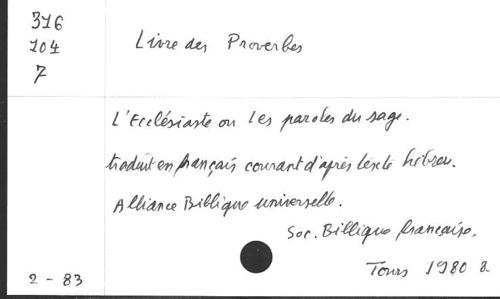 316
104
7
Livre des Proverbes
L'Ecclésiaste ou Les paroles du sage.
traduit en français courant d'après texte hébreu.
Alliance Biblique universelle.
Soc. Biblique française.
Tours 1980 8.
2 - 83